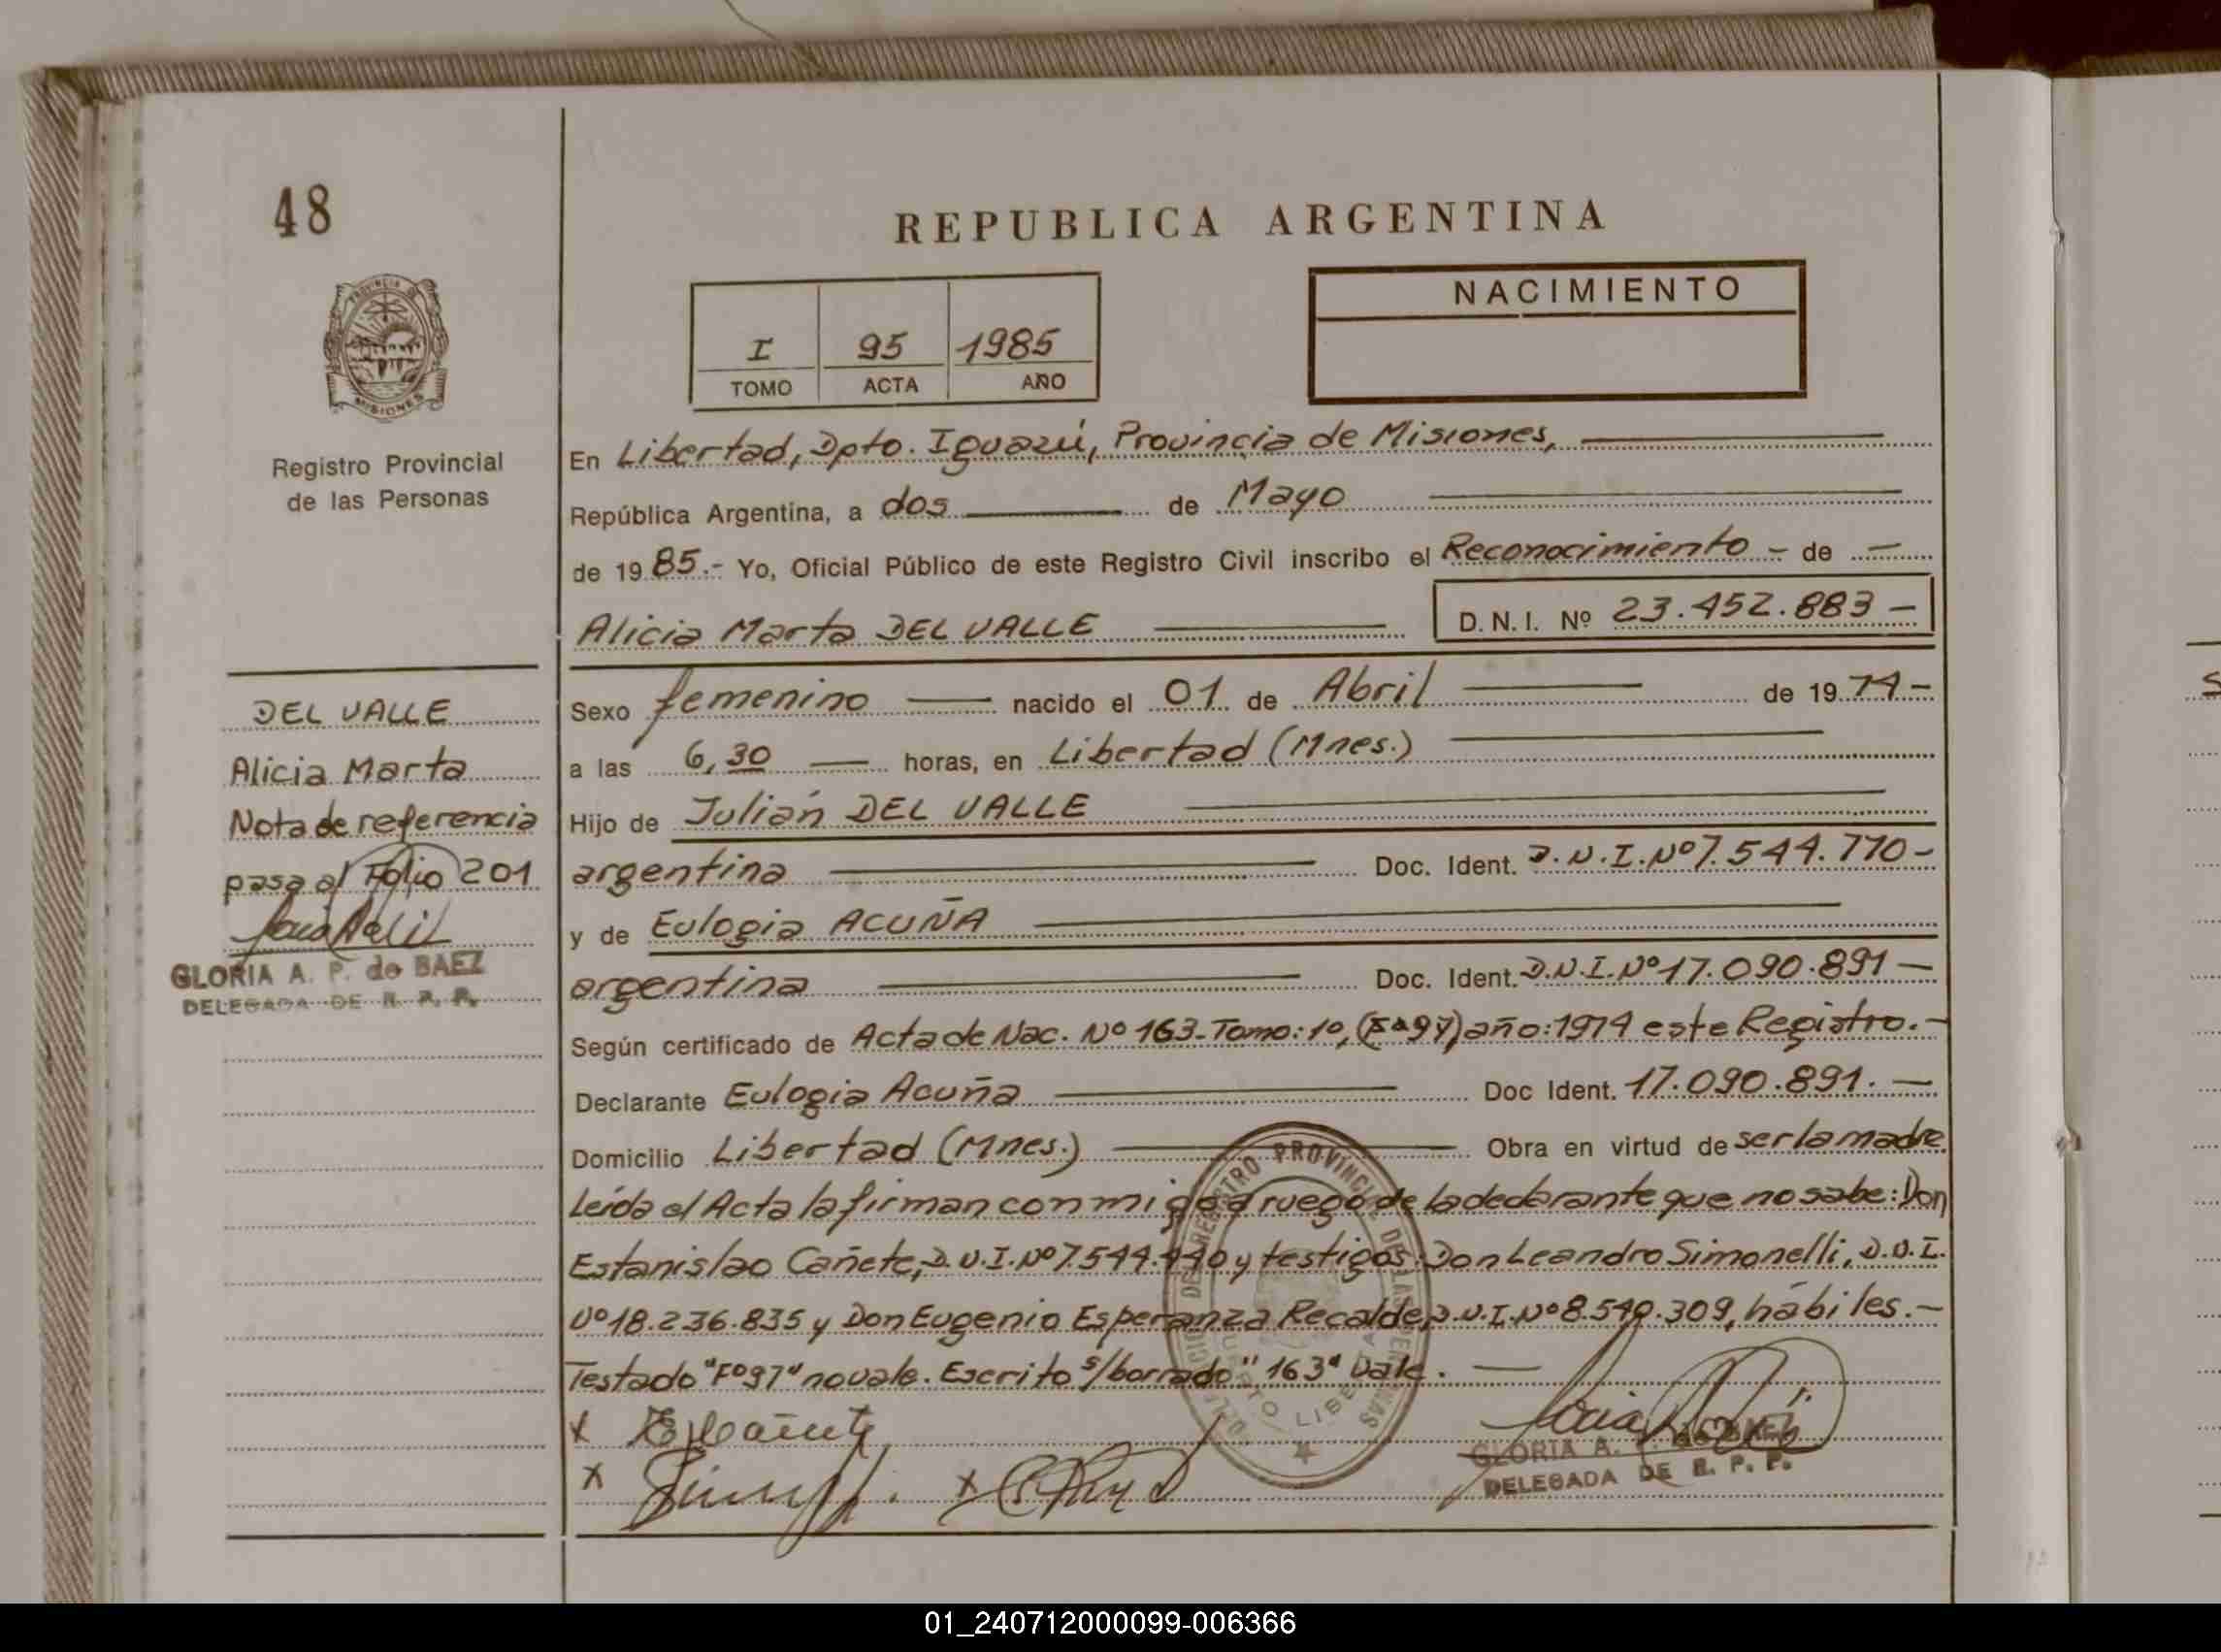 48
REPUBLICA ARGENTINA
NACIMIENTO
I 95 1985
TOMO ACTA AÑO
PROVINCIA DE
MISIONES
Registro Provincial
de las Personas
En Libertad, Dpto. Iguazú, Provincia de Misiones,
República Argentina, a dos de Mayo
de 1985.- Yo, Oficial Público de este Registro Civil inscribo el Reconocimiento - de -
Alicia Marta DEL VALLE D.N.I. Nº 23.452.883 -
DEL VALLE
Alicia Marta
Nota de referencia
pasa al Folio 201
GLORIA A. P. de BAEZ
DELEGADA DE R. P. P.
Sexo femenino nacido el 01 de Abril de 1974 -
a las 6,30 horas, en Libertad (Mnes.)
Hijo de Julián DEL VALLE
argentina Doc. Ident. D.N.I. Nº 7.544.770 -
y de Eulogia ACUÑA
argentina Doc. Ident. D.N.I. Nº 17.090.891 -
Según certificado de Acta de Nac. Nº 163 - Tomo: 1º, (Fº 97) año: 1974 este Registro. -
Declarante Eulogia Acuña Doc Ident. 17.090.891. -
Domicilio Libertad (Mnes.) Obra en virtud de ser la madre
leída el Acta la firman conmigo a ruego de la declarante que no sabe: Don
Estanislao Cañete, D.N.I. Nº 7.544.440 y testigos: Don Leandro Simonelli, D.N.I.
Nº 18.236.835 y Don Eugenio Esperanza Recalde, D.N.I. Nº 8.540.309, hábiles. -
Testado "Fº 97" no vale. Escrito s/borrado "163" Vale. -
GLORIA A. P. de BAEZ
DELEGADA DE R. P. P.
01_240712000099-006366